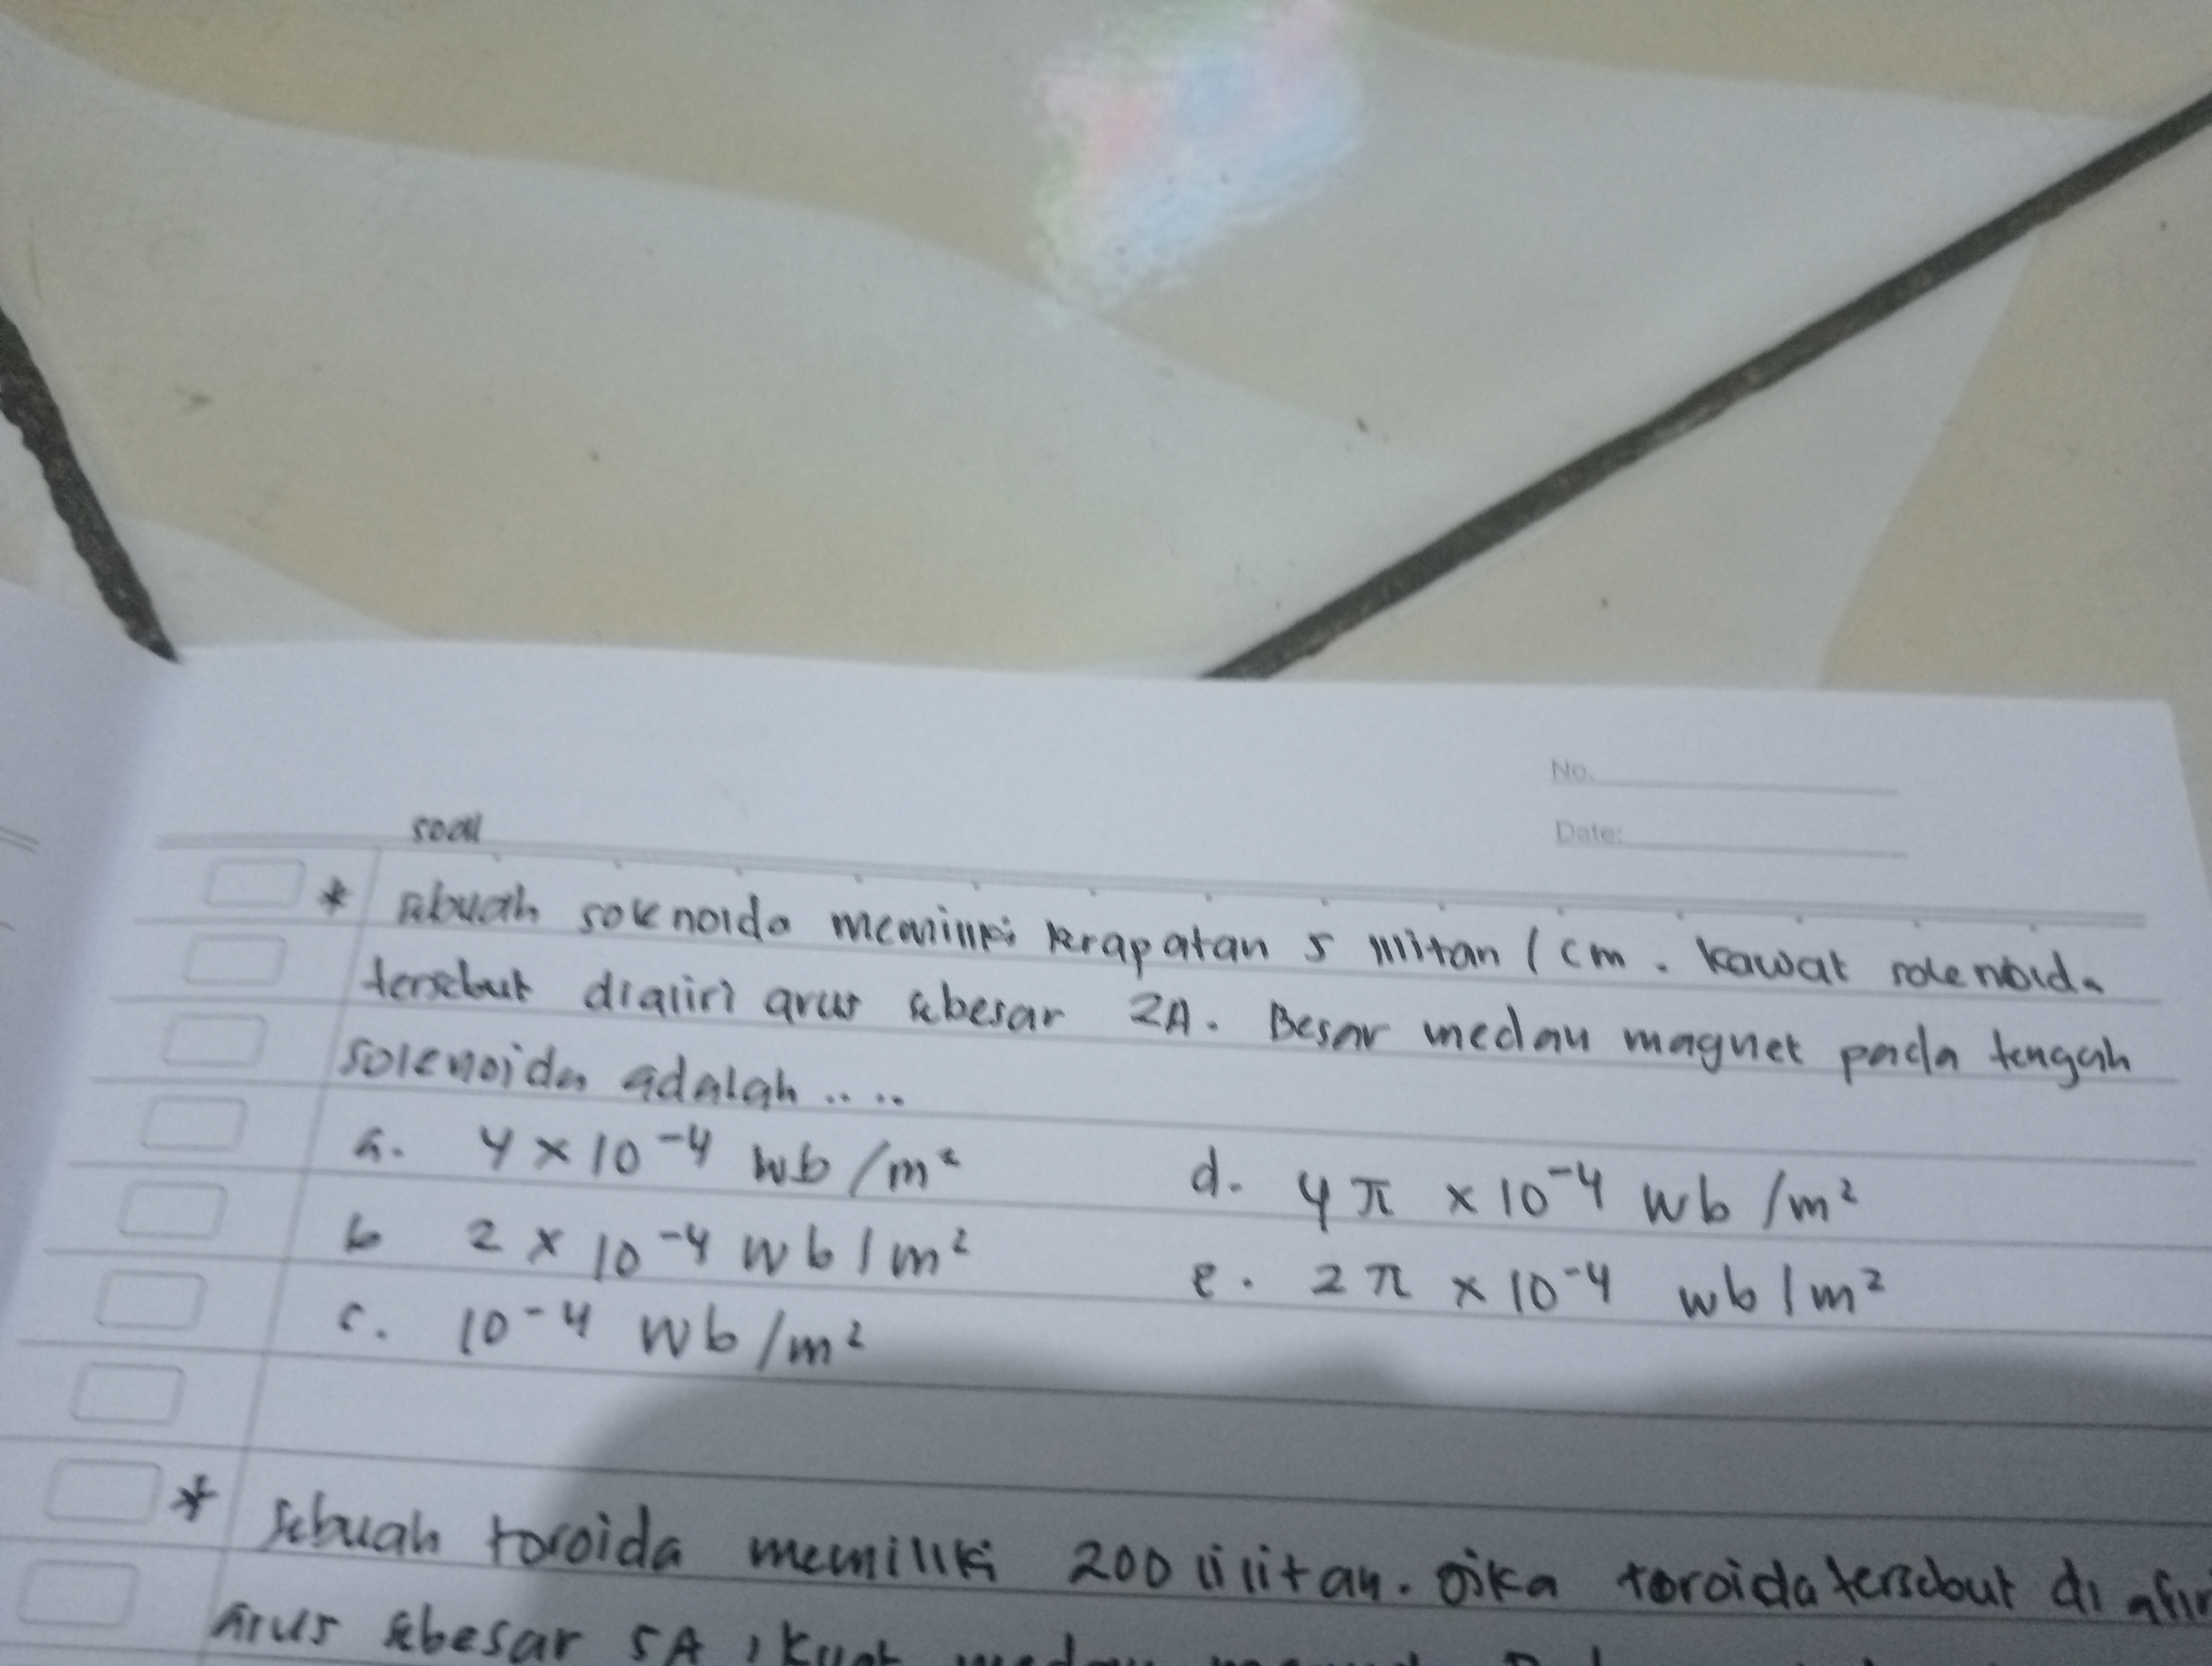 No.
Date:
soal
* sebuah solenoida memiliki kerapatan 5 lilitan / cm. kawat solenoida
tersebut dialiri arus sebesar 2A. Besar medan magnet pada tengah
solenoida adalah ....
a. 4 × 10⁻⁴ wb/m² d. 4π × 10⁻⁴ wb/m²
b 2 × 10⁻⁴ wb/m² e. 2π × 10⁻⁴ wb/m²
c. 10⁻⁴ wb/m²
* sebuah toroida memiliki 200 lilitan. jika toroida tersebut di
Arus sebesar 5A, kuat medan